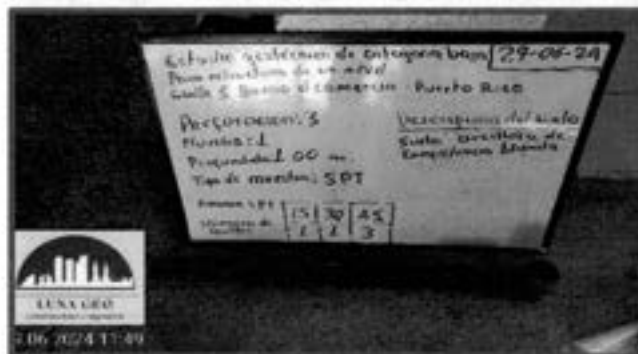 Estudio geotecnico de categoria baja 29-06-24
Para estructura de un nivel
Calle 5 Barrio el comercio - Puerto Rico
Perforacion: 3
Muestra: 1
Profundidad 1.00 m.
Tipo de muestra: SPT
Descripcion del suelo
Suelo arcilloso de
consistencia blanda
SPT
15 30 45
Numero de golpes
1 1 3
LUNA GEO
.06.2024 11:49